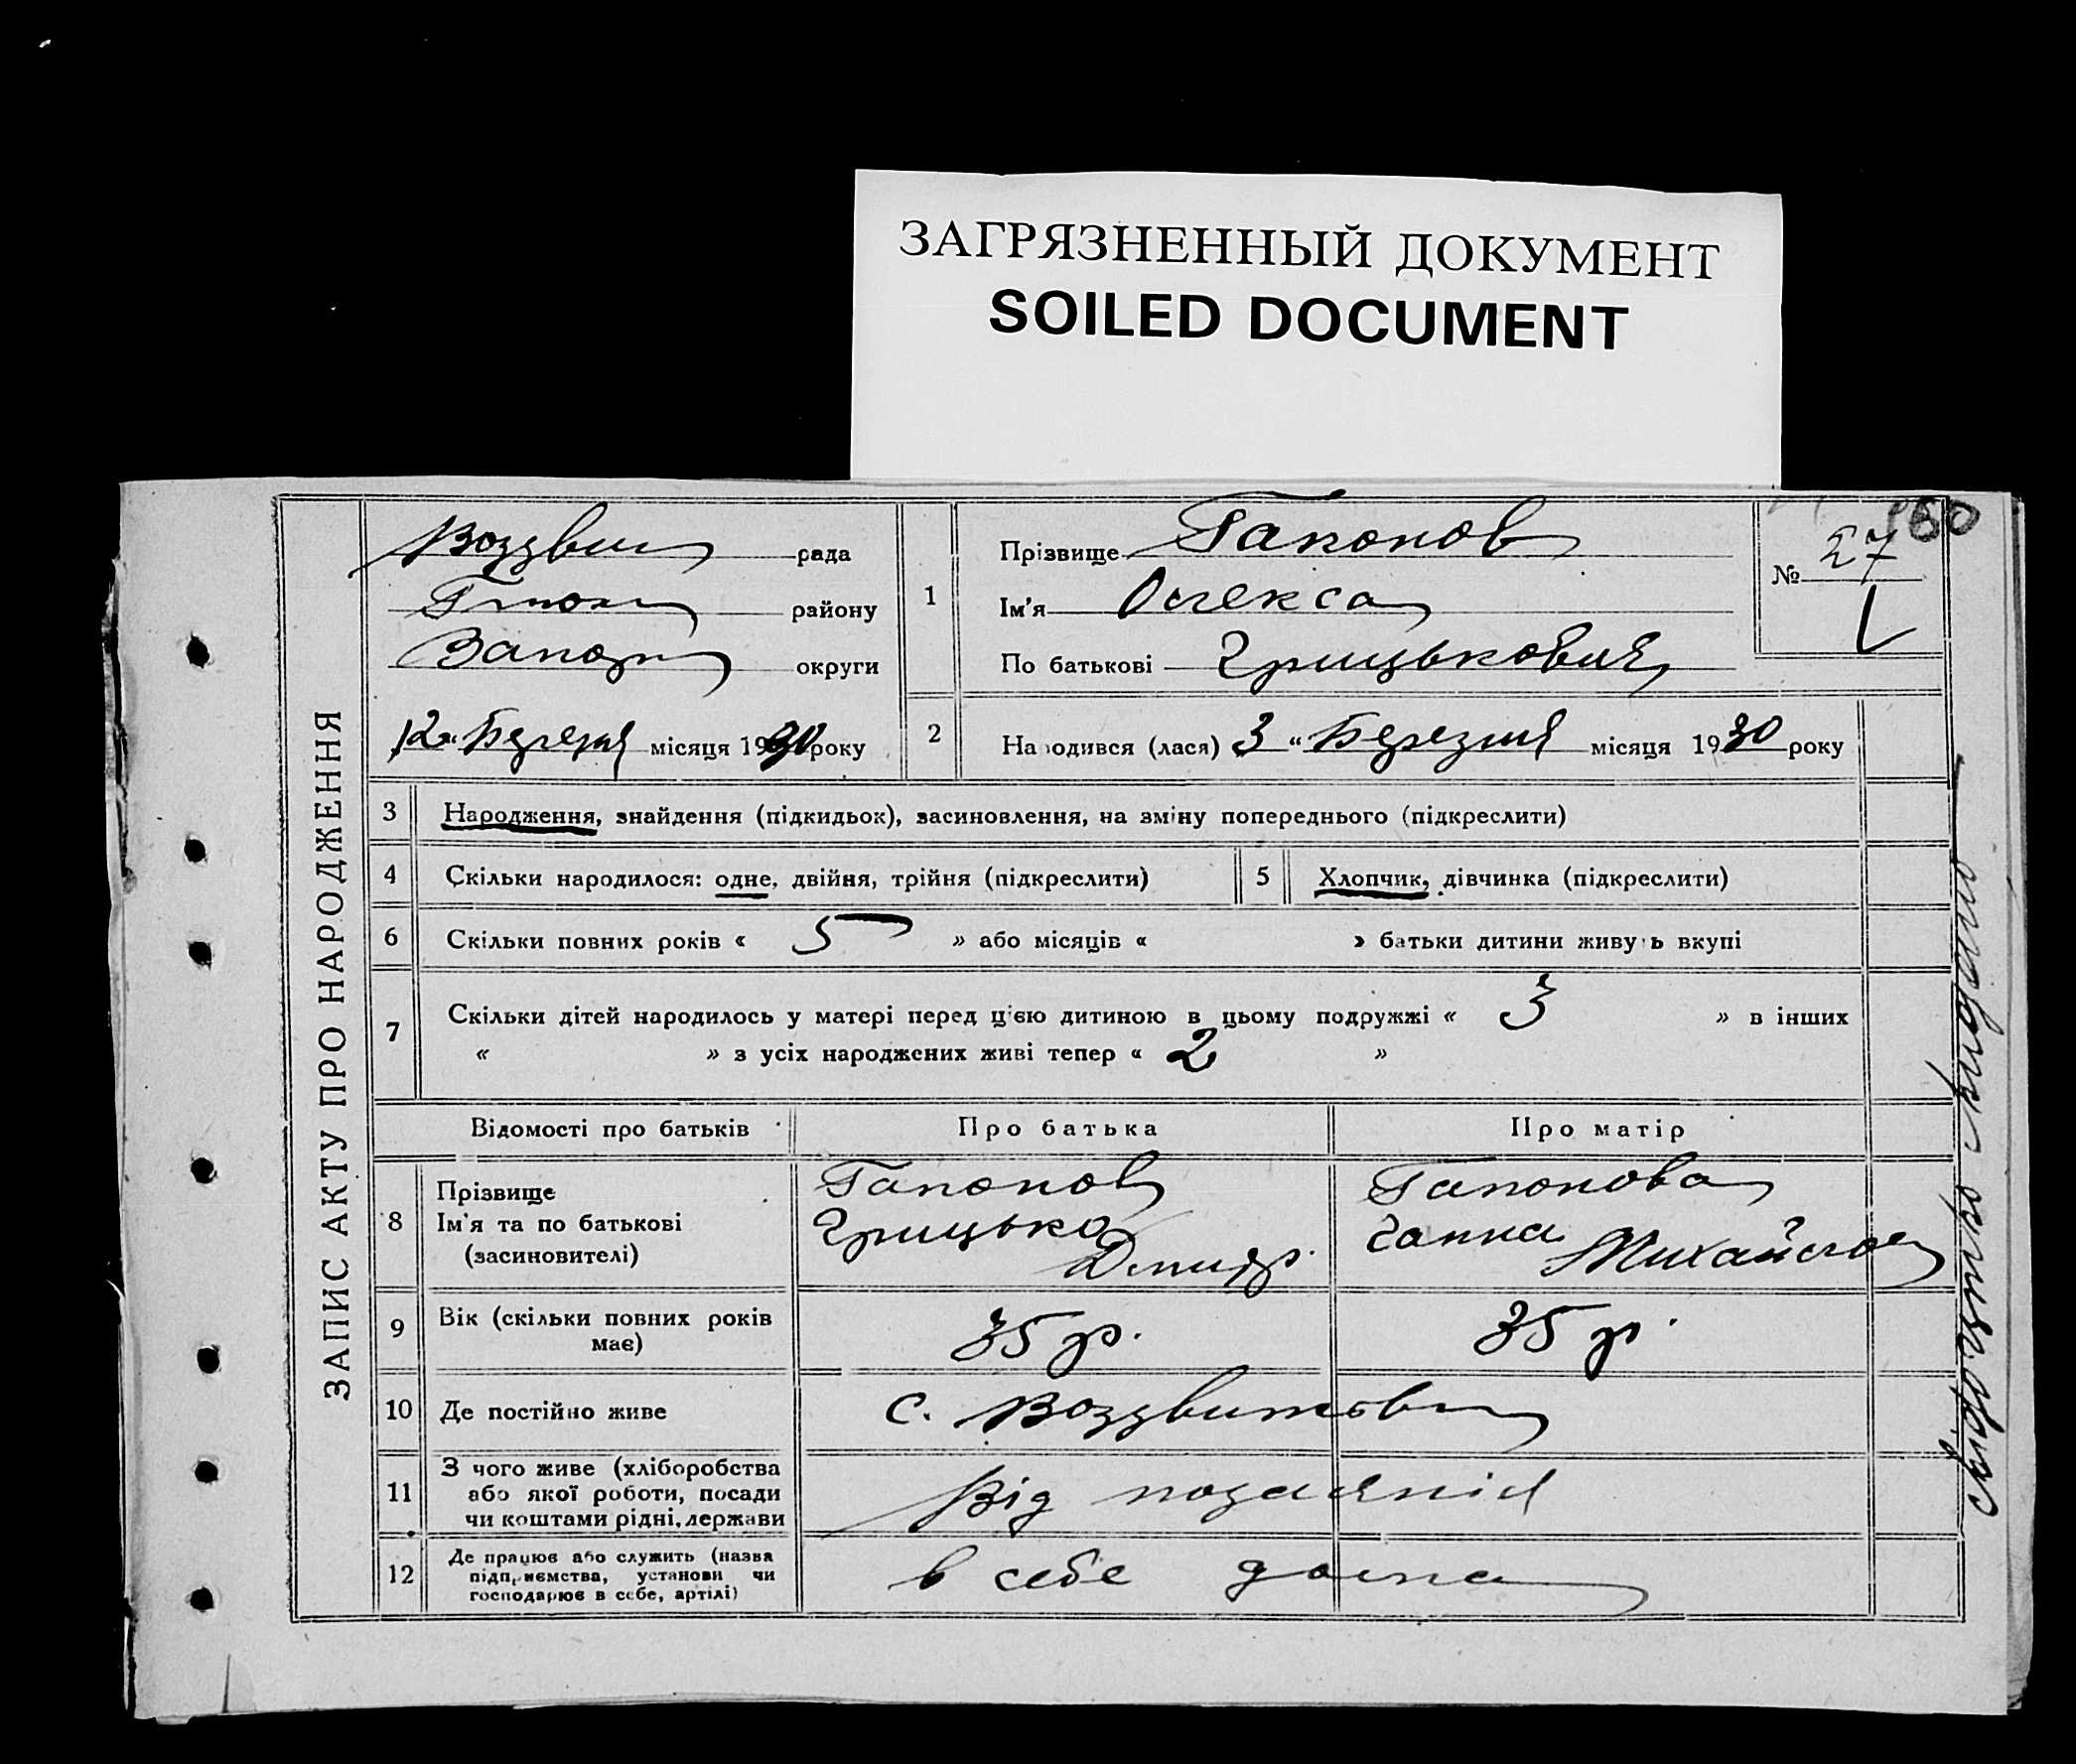 ЗАГРЯЗНЕННЫЙ ДОКУМЕНТ
SOILED DOCUMENT
160
ЗАПИС АКТУ ПРО НАРОДЖЕННЯ
Воздвиж рада
району
Запоріз округи
12 Березня місяця 1930 року
1
Прізвище Гапонов
Ім'я Олекса
По батькові Грицькович
№ 27
2
Народився (лася) 3 " Березня місяця 1930 року
3 Народження, знайдення (підкидьок), засиновлення, на зміну попереднього (підкреслити)
4 Скільки народилося: одне, двійня, трійня (підкреслити)
5 Хлопчик, дівчинка (підкреслити)
6 Скільки повних років « 5 » або місяців « » батьки дитини живуть вкупі
7 Скільки дітей народилось у матері перед цією дитиною в цьому подружжі « 3 » в інших
« » з усіх народжених живі тепер « 2 »
Відомості про батьків
Про батька
Про матір
8 Прізвище
Ім'я та по батькові
(засиновителі)
Гапонов
Грицько
Дмитр.
Гапонова
Ганна
Михайлов
9 Вік (скільки повних років
має)
35 р.
35 р.
10 Де постійно живе
с. Воздвижівка
11 З чого живе (хліборобства
або якої роботи, посади
чи коштами рідні, держави
Від
12 Де працює або служить (назва
підприємства, установи чи
господарює в себе, артілі)
в себе дома
свідоцтво видано